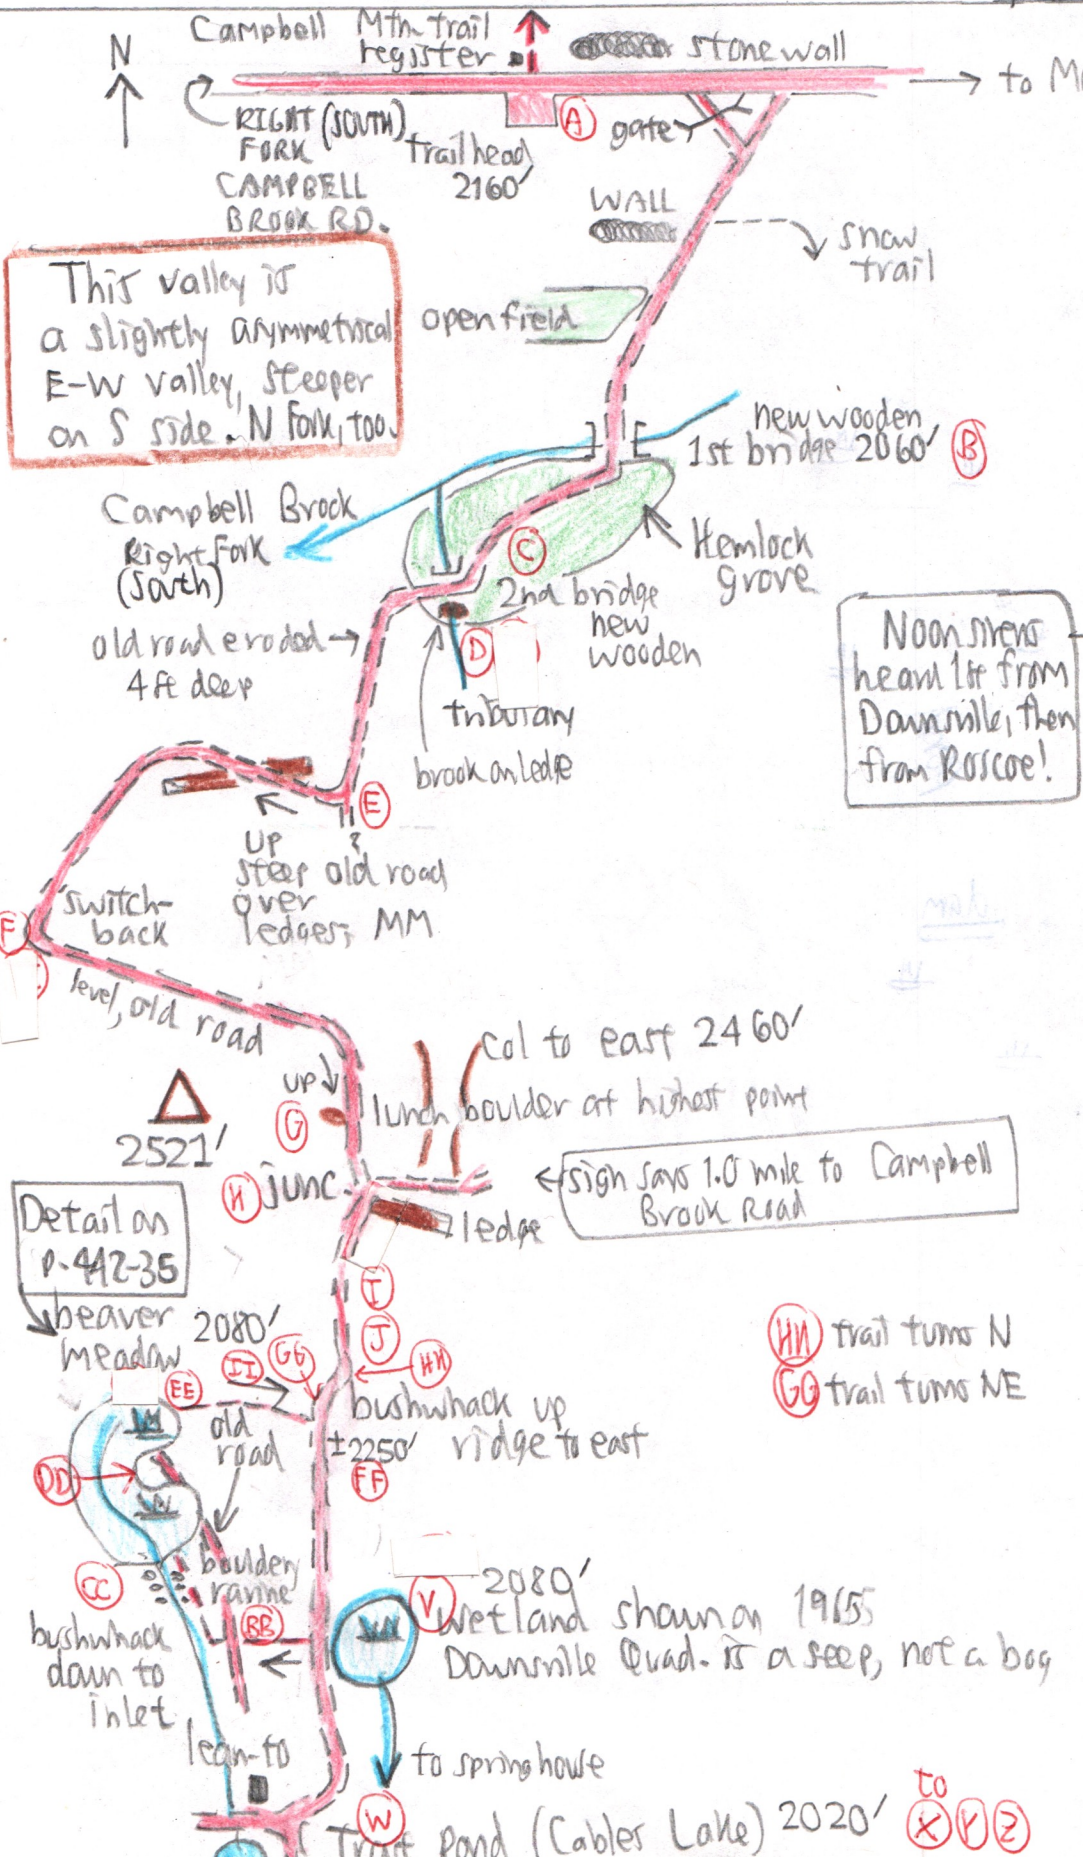 Campbell Mtn. trail
register
stone wall
N
to M
RIGHT (SOUTH)
FORK
CAMPBELL
BROOK RD.
trailhead
2160'
A
gate
WALL
snow
trail
This valley is
a slightly asymmetrical
E-W valley, steeper
on S side. N Fork, too.
open field
new wooden
1st bridge 2060'
B
Campbell Brook
Right Fork
(South)
C
Hemlock
grove
2nd bridge
new
wooden
D
old road eroded
4 ft deep
tributary
brook on ledge
Noon sirens
heard 1st from
Downsville, then
from Roscoe!
E
?
up
steep old road
over
ledges; MM
F
switch-
back
level, old road
col to east 2460'
up
G
lunch boulder at highest point
2521'
H
junc.
sign says 1.0 mile to Campbell
Brook Road
ledge
Detail on
p. 442-35
I
J
beaver
meadow
2080'
II
GG
HH
HH trail turns N
GG trail turns NE
EE
old
road
bushwhack up
ridge to east
±2250'
FF
DD
CC
bouldery
ravine
BB
bushwhack
down to
inlet
V
2080'
Wetland shown on 1965
Downsville Quad. is a seep, not a bog
lean-to
to springhouse
W
Trout Pond (Cables Lake) 2020'
to
X Y Z